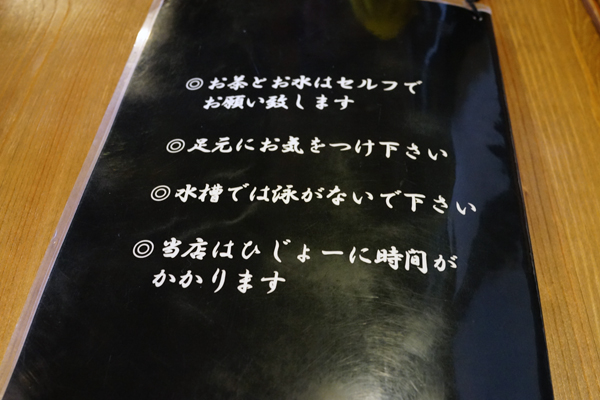 ◎お茶とお水はセルフで
お願い致します
◎足元にお気をつけ下さい
◎水槽では泳がないで下さい
◎当店はひじょーに時間が
かかります